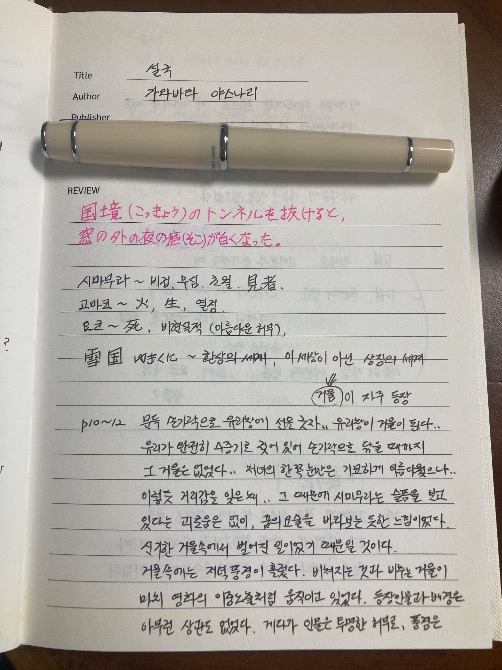 Title 설국
Author 가와바타 야스나리
Publisher
REVIEW
国境(こっきょう)のトンネルを抜けると,
窓の外の夜の底(そこ)が白くなった。
시마무라 ~ 비겁, 무심, 초월, 見者.
고마코 ~ 火, 生, 열정
요코 ~ 死, 비현실적 (아름다운 허무),
雪国 ~ 환상의 세계, 이 세상이 아닌 상징의 세계
거울이 자주 등장
p10~12 문득 손가락으로 유리창에 선을 긋자.. 유리창이 거울이 된다..
유리가 완전히 수증기로 젖어 있어 손가락으로 닦을 때까지
그 거울은 없었다.. 처녀의 한쪽 눈만은 기묘하게 아름다웠으나..
이렇듯 거리감을 잊은 채.. 그 때문에 시마무라는 슬픔을 보고
있다는 괴로움은 없이, 꿈의 요술을 바라보는 듯한 느낌이었다.
신기한 거울속에서 벌어진 일이었기 때문일 것이다.
거울속에는 저녁풍경이 흘렀다. 비쳐지는 것과 비추는 거울이
마치 영화의 이중노출처럼 움직이고 있었다. 등장인물과 배경은
아무런 상관도 없었다. 게다가 인물은 투명한 허무로, 풍경은